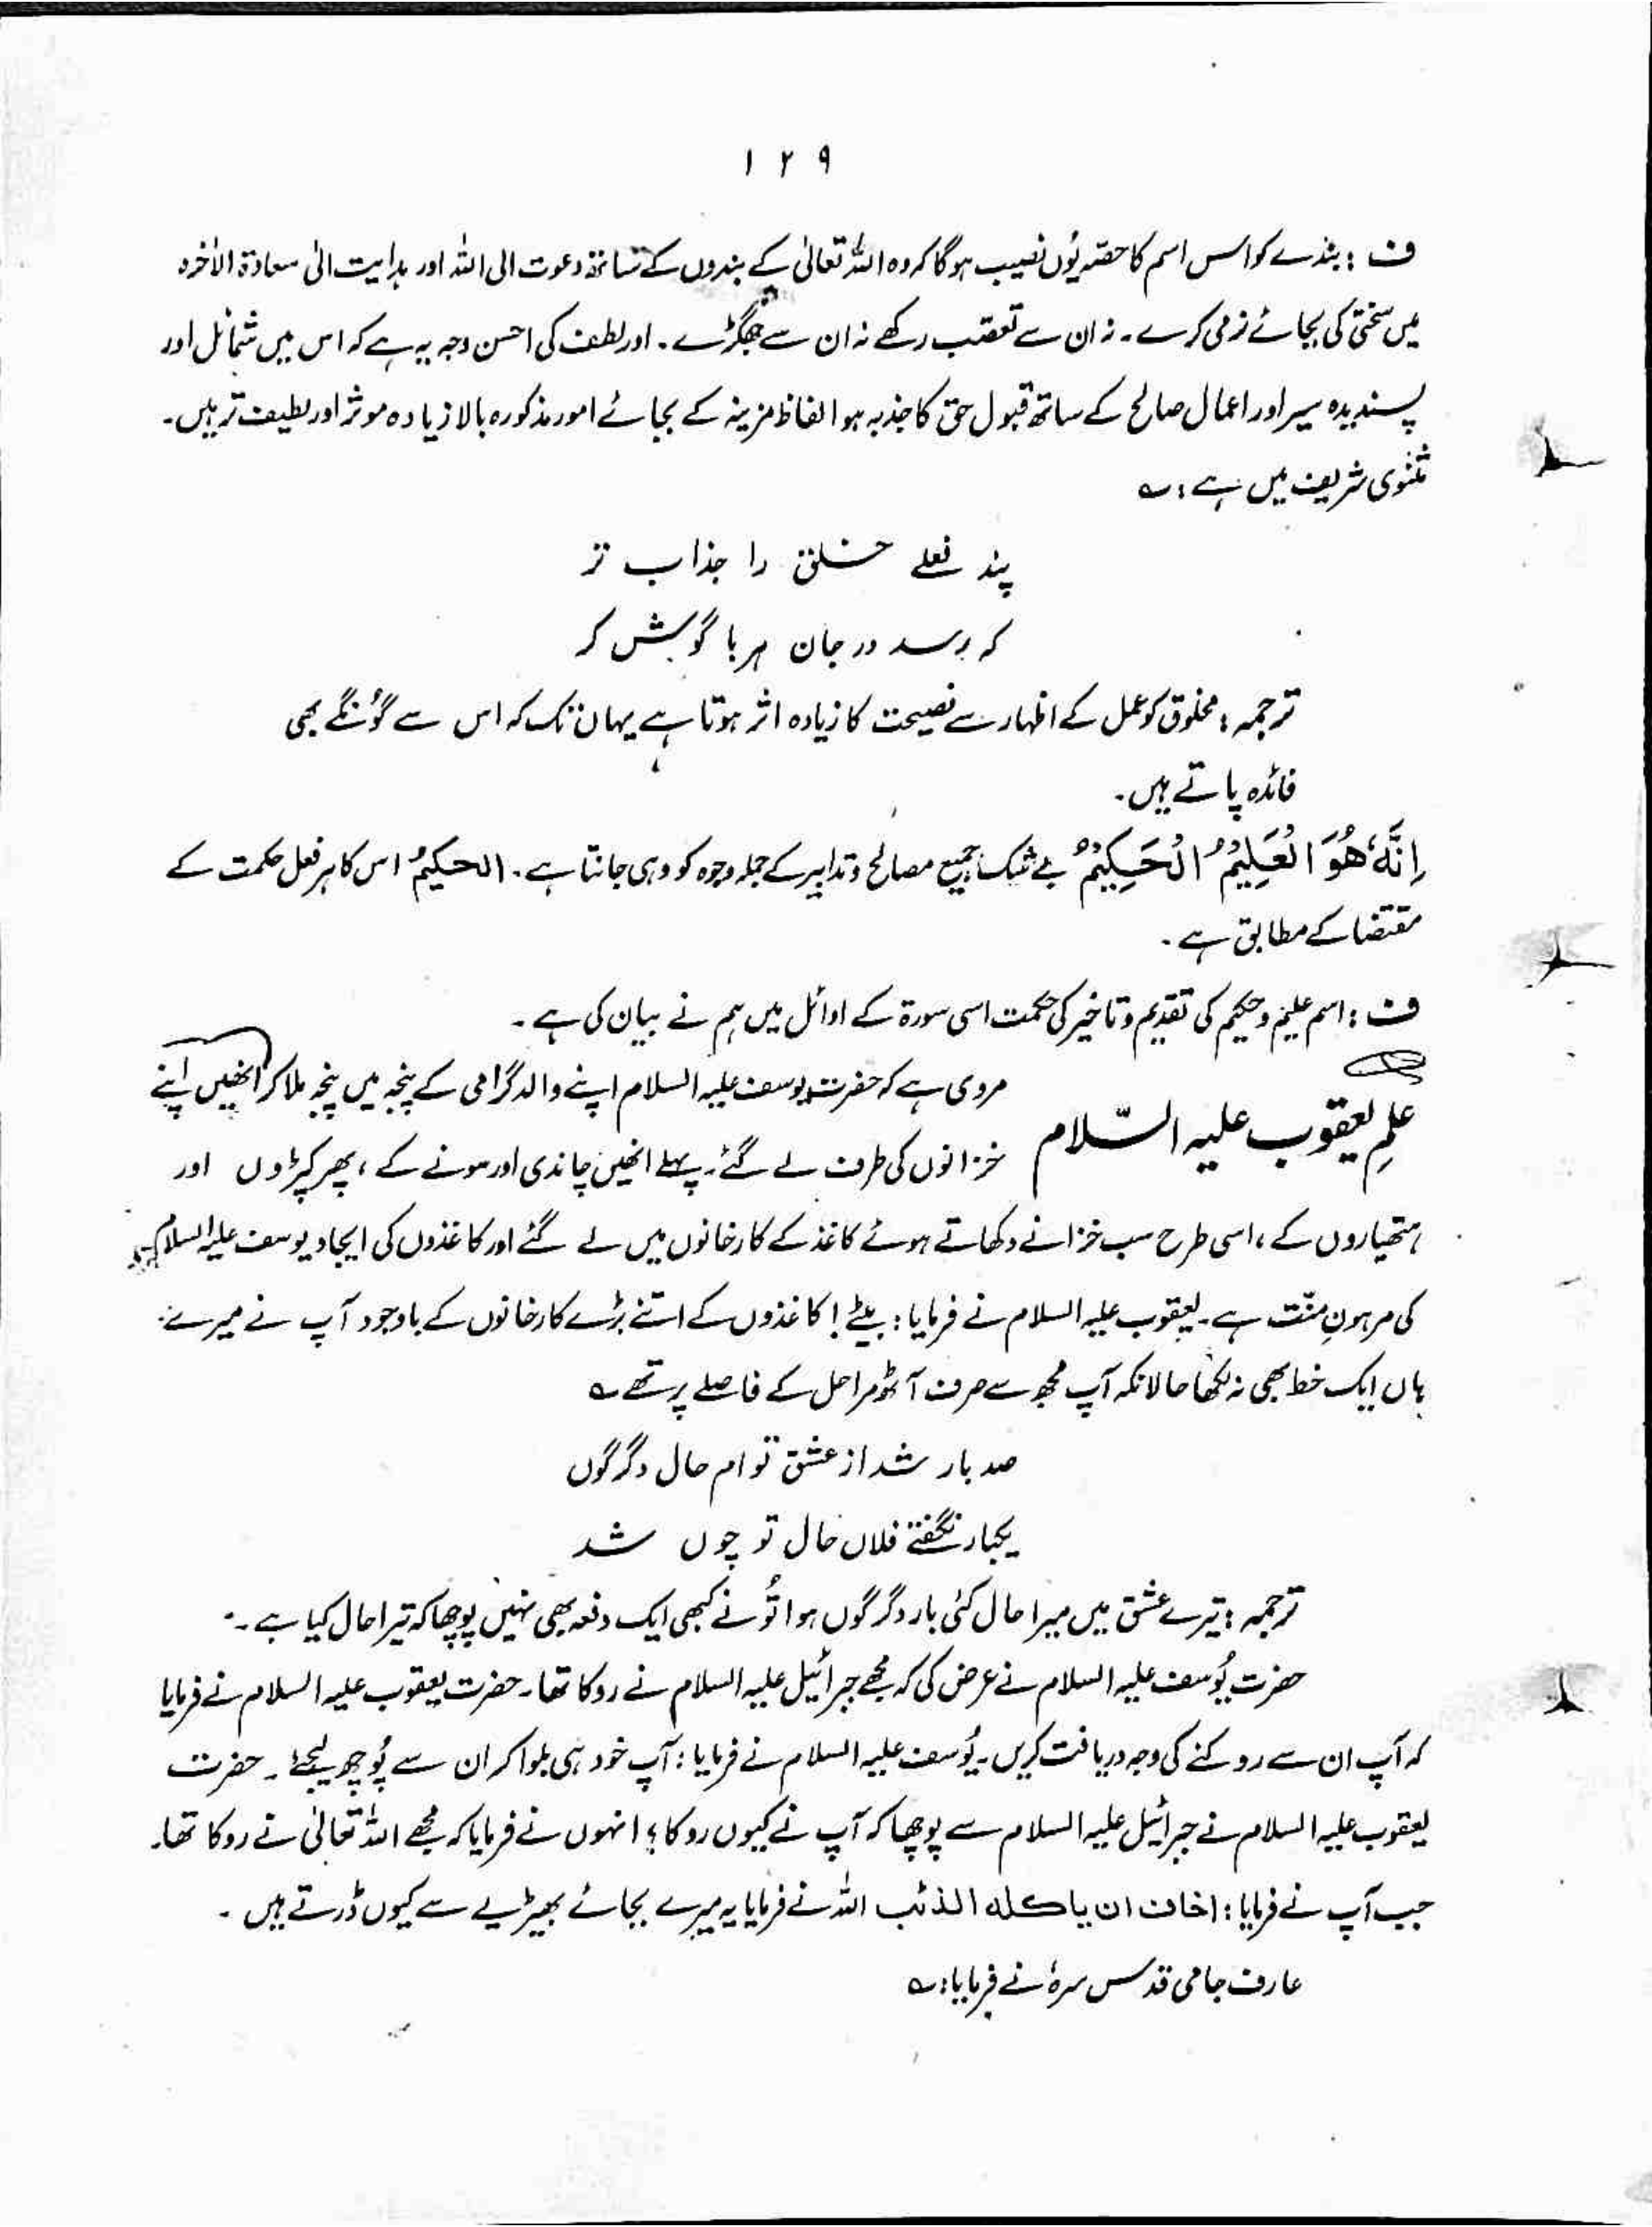 ۱۲۹
ف : بندے کو اس اسم کا حصّہ یُوں نصیب ہو گا کہ وہ اللہ تعالیٰ کے بندوں کے ساتھ دعوت الی اللہ اور ہدایت الیٰ سعادۃ الاٰخرہ
میں سختی کی بجائے نرمی کرے۔ نہ ان سے تعصّب رکھے نہ ان سے جھگڑے۔ اور لطف کی احسن وجہ یہ ہے کہ اس میں شمائل اور
پسندیدہ سیر اور اعمال صالح کے ساتھ قبول حق کا جذبہ ہو الفاظ مزینہ کے بجائے امور مذکورہ بالا زیادہ موثر اور لطیف تر ہیں۔
مثنوی شریف میں ہے : ؎
پند فعلے خلق را جذاب تر
کہ رسد در جان ہر با گوش کر
ترجمہ : مخلوق کو عمل کے اظہار سے نصیحت کا زیادہ اثر ہوتا ہے یہاں تک کہ اس سے گُونگے بھی
فائدہ پاتے ہیں۔
اِنَّہٗ ھُوَ الْعَلِیْمُ الْحَکِیْمُ بے شک جمیع مصالح و تدابیر کے جملہ وجوہ کو وہی جانتا ہے۔ الحکیمُ اس کا ہر فعل حکمت کے
مقتضا کے مطابق ہے۔
ف : اسم علیم و حکیم کی تقدیم و تاخیر کی حکمت اسی سورۃ کے اوائل میں ہم نے بیان کی ہے۔
مروی ہے کہ حضرت یوسف علیہ السلام اپنے والد گرامی کے پنجہ میں پنجہ ملا کر انھیں اپنے
علمِ یعقوب علیہ السّلام
خزانوں کی طرف لے گئے۔ پہلے انھیں چاندی اور سونے کے ، پھر کپڑوں اور
ہتھیاروں کے ، اسی طرح سب خزانے دکھاتے ہوئے کاغذ کے کارخانوں میں لے گئے اور کاغذوں کی ایجاد یوسف علیہ السلام
کی مرہونِ منّت ہے۔ یعقوب علیہ السلام نے فرمایا : بیٹے ! کاغذوں کے اتنے بڑے کارخانوں کے باوجود آپ نے میرے
ہاں ایک خط بھی نہ لکھا حالانکہ آپ مجھ سے صرف آٹھ مراحل کے فاصلے پر تھے ؎
صد بار شد از عشق تو ام حال دگرگوں
یکبار نگفتے فلاں حال تو چوں شد
ترجمہ : تیرے عشق میں میرا حال کئی بار دگرگوں ہوا تُو نے کبھی ایک دفعہ بھی نہیں پوچھا کہ تیرا حال کیا ہے۔
حضرت یُوسف علیہ السلام نے عرض کی کہ مجھے جبرائیل علیہ السلام نے روکا تھا۔ حضرت یعقوب علیہ السلام نے فرمایا
کہ آپ ان سے روکنے کی وجہ دریافت کریں۔ یُوسف علیہ السلام نے فرمایا : آپ خود ہی بلوا کر ان سے پُوچھ لیجئے۔ حضرت
یعقوب علیہ السلام نے جبرائیل علیہ السلام سے پوچھا کہ آپ نے کیوں روکا ؟ انہوں نے فرمایا کہ مجھے اللہ تعالیٰ نے روکا تھا۔
جب آپ نے فرمایا : اخاف ان یاکلہ الذئب اللہ نے فرمایا یہ میرے بجائے بھیڑیے سے کیوں ڈرتے ہیں۔
عارف جامی قدس سرہٗ نے فرمایا : ؎